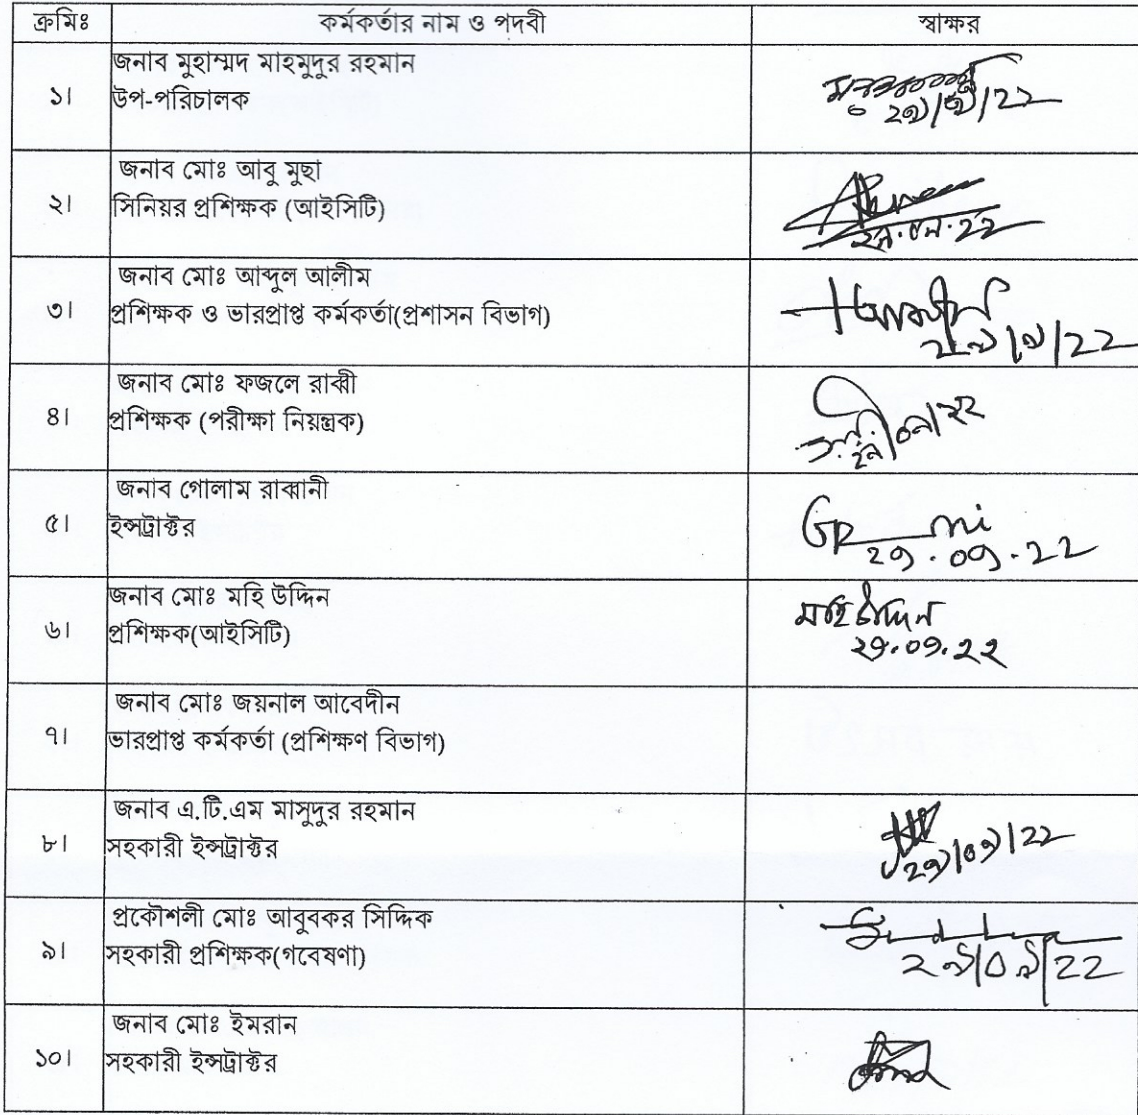 ক্রমিঃ কর্মকর্তার নাম ও পদবী স্বাক্ষর
জনাব মুহাম্মদ মাহমুদুর রহমান
১। উপ-পরিচালক
২৯/৯/২২
জনাব মোঃ আবু মুছা
২। সিনিয়র প্রশিক্ষক (আইসিটি)
২৯.০৯.২২
জনাব মোঃ আব্দুল আলীম
৩। প্রশিক্ষক ও ভারপ্রাপ্ত কর্মকর্তা(প্রশাসন বিভাগ)
২৯/৯/২২
জনাব মোঃ ফজলে রাব্বী
৪। প্রশিক্ষক (পরীক্ষা নিয়ন্ত্রক)
২৯/০৯/২২
জনাব গোলাম রাব্বানী
৫। ইন্সট্রাক্টর
২৯.০৯.২২
জনাব মোঃ মহি উদ্দিন
৬। প্রশিক্ষক(আইসিটি)
মহিউদ্দিন
২৯.০৯.২২
জনাব মোঃ জয়নাল আবেদীন
৭। ভারপ্রাপ্ত কর্মকর্তা (প্রশিক্ষণ বিভাগ)
জনাব এ.টি.এম মাসুদুর রহমান
৮। সহকারী ইন্সট্রাক্টর
২৯/০৯/২২
প্রকৌশলী মোঃ আবুবকর সিদ্দিক
৯। সহকারী প্রশিক্ষক(গবেষণা)
২৯/০৯/২২
জনাব মোঃ ইমরান
১০। সহকারী ইন্সট্রাক্টর